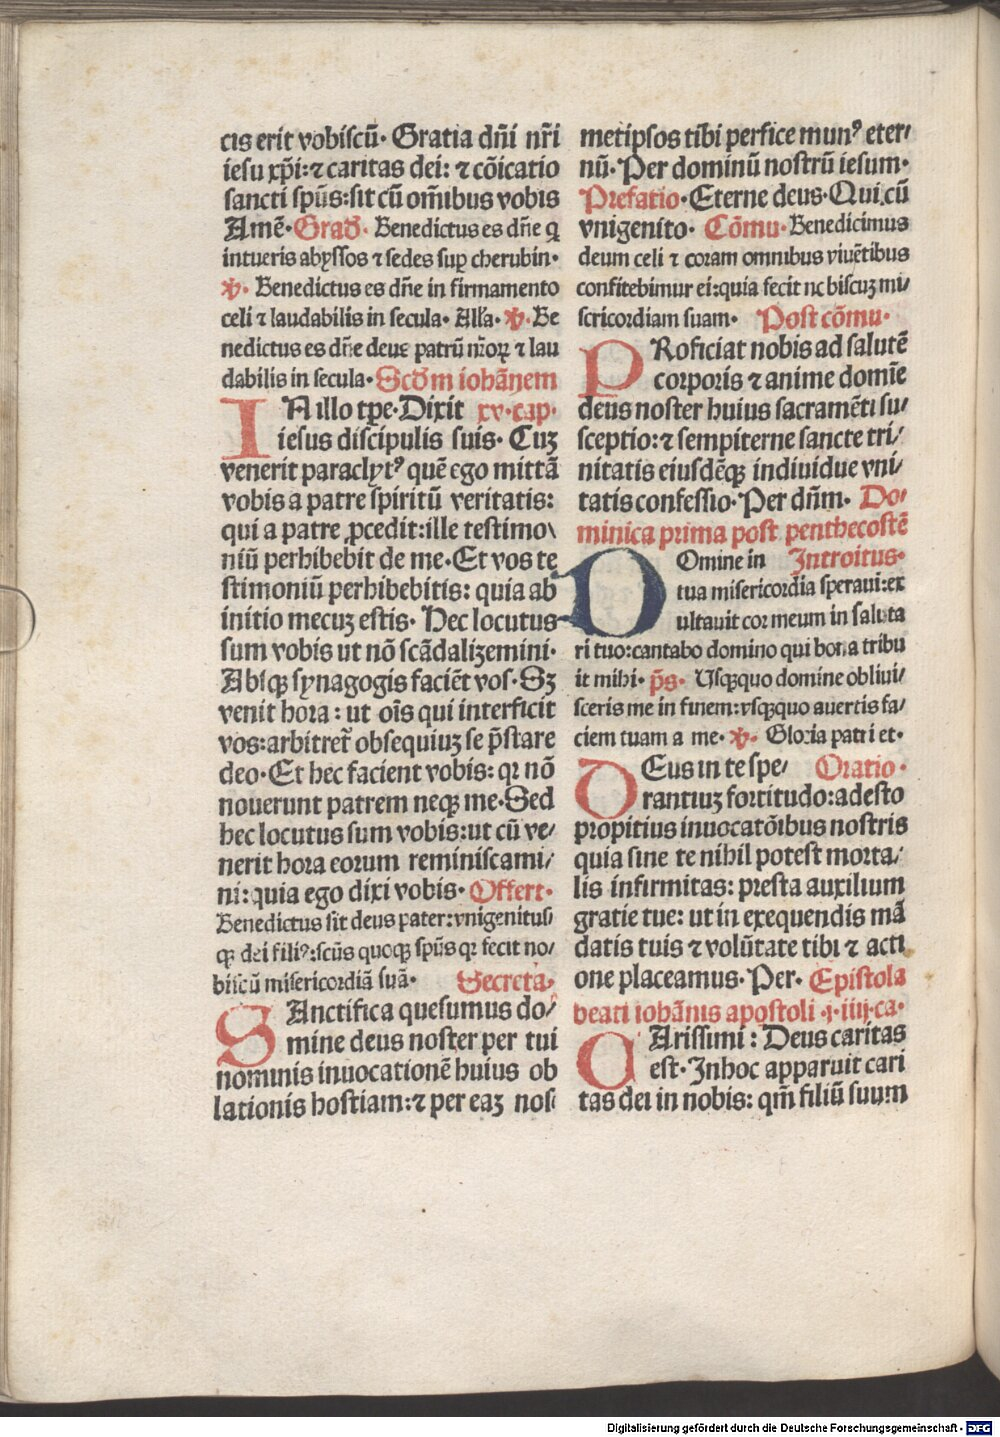 cis erit vobiscū· Gratia dn̄i nr̄i
iesu xp̄i:⁊ caritas dei: ⁊ cōicatio
sancti sp̄us:sit cū om̄ibus vobis
Amē· Grad̄· Benedictus es dn̄e q
intueris abyssos ⁊ sedes suꝑ cherubin·
℣· Benedictus es dn̄e in firmamento
celi ⁊ laudabilis in secula· All'a· ℣· Be
nedictus es dn̄e deus patrū nr̄oꝝ ⁊ lau
dabilis in secula· Scd̄m iohānem
IN illo tꝑe· Dixit xv·cap·
iesus discipulis suis· Cuꝫ
venerit paraclytꝰ quē ego mittā
vobis a patre spiritū veritatis:
qui a patre ꝓcedit:ille testimo⸗
niū perhibebit de me· Et vos te
stimoniū perhibebitis: quia ab
initio mecuꝫ estis· Hec locutus
sum vobis ut nō scādalizemini·
Absqꝫ synagogis faciēt vos· Sꝫ
venit hora: ut oīs qui interficit
vos:arbitret̄ obsequiuꝫ se p̄stare
deo· Et hec facient vobis: qꝛ nō
nouerunt patrem neqꝫ me· Sed
hec locutus sum vobis:ut cū ve⸗
nerit hora eorum reminiscami⸗
ni: quia ego dixi vobis· Offert·
Benedictus sit deus pater:vnigenitus
qꝫ dei filiꝰ:scūs quoqꝫ sp̄us qꝛ fecit no⸗
biscū misericordiā suā· Secreta·
SAnctifica quesumus do⸗
mine deus noster per tui
nominis inuocationē huius ob
lationis hostiam:⁊ per eaꝫ nos
metipsos tibi perfice munꝰ eter⸗
nū· Per dominū nostrū iesum·
Prefatio· Eterne deus· Qui cū
vnigenito· Cōmu· Benedicimus
deum celi ⁊ coram omnibus viuētibus
confitebimur ei:quia fecit nobiscuꝫ mi⸗
sericordiam suam· Post cōmu·
PRoficiat nobis ad salutē
corporis ⁊ anime domīe
deus noster huius sacramēti su⸗
sceptio:⁊ sempiterne sancte tri⸗
nitatis eiusdēqꝫ indiuidue vni⸗
tatis confessio· Per dn̄m· Do⸗
minica prima post penthecostē
DOmine in Introitus·
tua misericordia speraui:ex
ultauit cor meum in saluta
ri tuo:cantabo domino qui bona tribu
it mihi· p̄s· Usqꝫquo domine obliui⸗
sceris me in finem:vsqꝫquo auertis fa⸗
ciem tuam a me· ℣· Gloria patri et·
DEus in te spe⸗ Oratio·
rantiuꝫ fortitudo:adesto
propitius inuocatōibus nostris
quia sine te nihil potest morta⸗
lis infirmitas: presta auxilium
gratie tue: ut in exequendis mā
datis tuis ⁊ volūtate tibi ⁊ acti
one placeamus· Per· Epistola
beati iohānis apostoli ·j·iiij·ca·
CArissimi: Deus caritas
est· In hoc apparuit cari
tas dei in nobis: qm̄ filiū suum
Digitalisierung gefördert durch die Deutsche Forschungsgemeinschaft - DFG